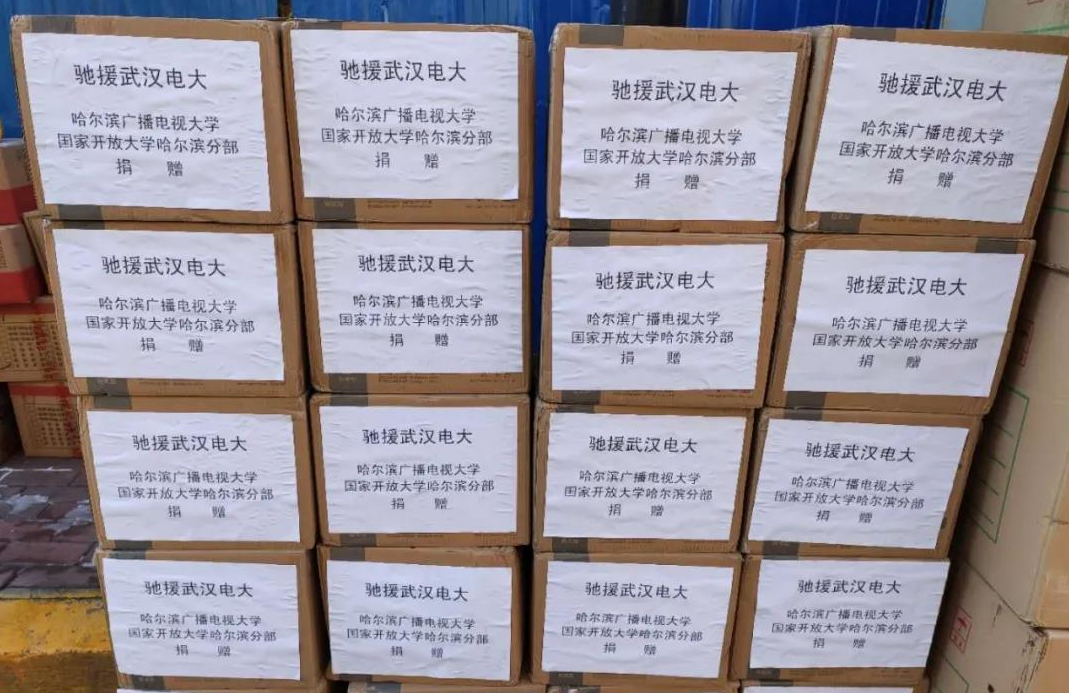 驰援武汉电大
哈尔滨广播电视大学
国家开放大学哈尔滨分部
捐 赠
驰援武汉电大
哈尔滨广播电视大学
国家开放大学哈尔滨分部
捐 赠
驰援武汉电大
哈尔滨广播电视大学
国家开放大学哈尔滨分部
捐 赠
驰援武汉电大
哈尔滨广播电视大学
国家开放大学哈尔滨分部
捐 赠
驰援武汉电大
哈尔滨广播电视大学
国家开放大学哈尔滨分部
捐 赠
驰援武汉电大
哈尔滨广播电视大学
国家开放大学哈尔滨分部
捐 赠
驰援武汉电大
哈尔滨广播电视大学
国家开放大学哈尔滨分部
捐 赠
驰援武汉电大
哈尔滨广播电视大学
国家开放大学哈尔滨分部
捐 赠
驰援武汉电大
哈尔滨广播电视大学
国家开放大学哈尔滨分部
捐 赠
驰援武汉电大
哈尔滨广播电视大学
国家开放大学哈尔滨分部
捐 赠
驰援武汉电大
哈尔滨广播电视大学
国家开放大学哈尔滨分部
捐 赠
驰援武汉电大
哈尔滨广播电视大学
国家开放大学哈尔滨分部
捐 赠
驰援武汉电大
哈尔滨广播电视大学
国家开放大学哈尔滨分部
捐 赠
驰援武汉电大
哈尔滨广播电视大学
国家开放大学哈尔滨分部
捐 赠
驰援武汉电大
哈尔滨广播电视大学
国家开放大学哈尔滨分部
捐 赠
驰援武汉电大
哈尔滨广播电视大学
国家开放大学哈尔滨分部
捐 赠